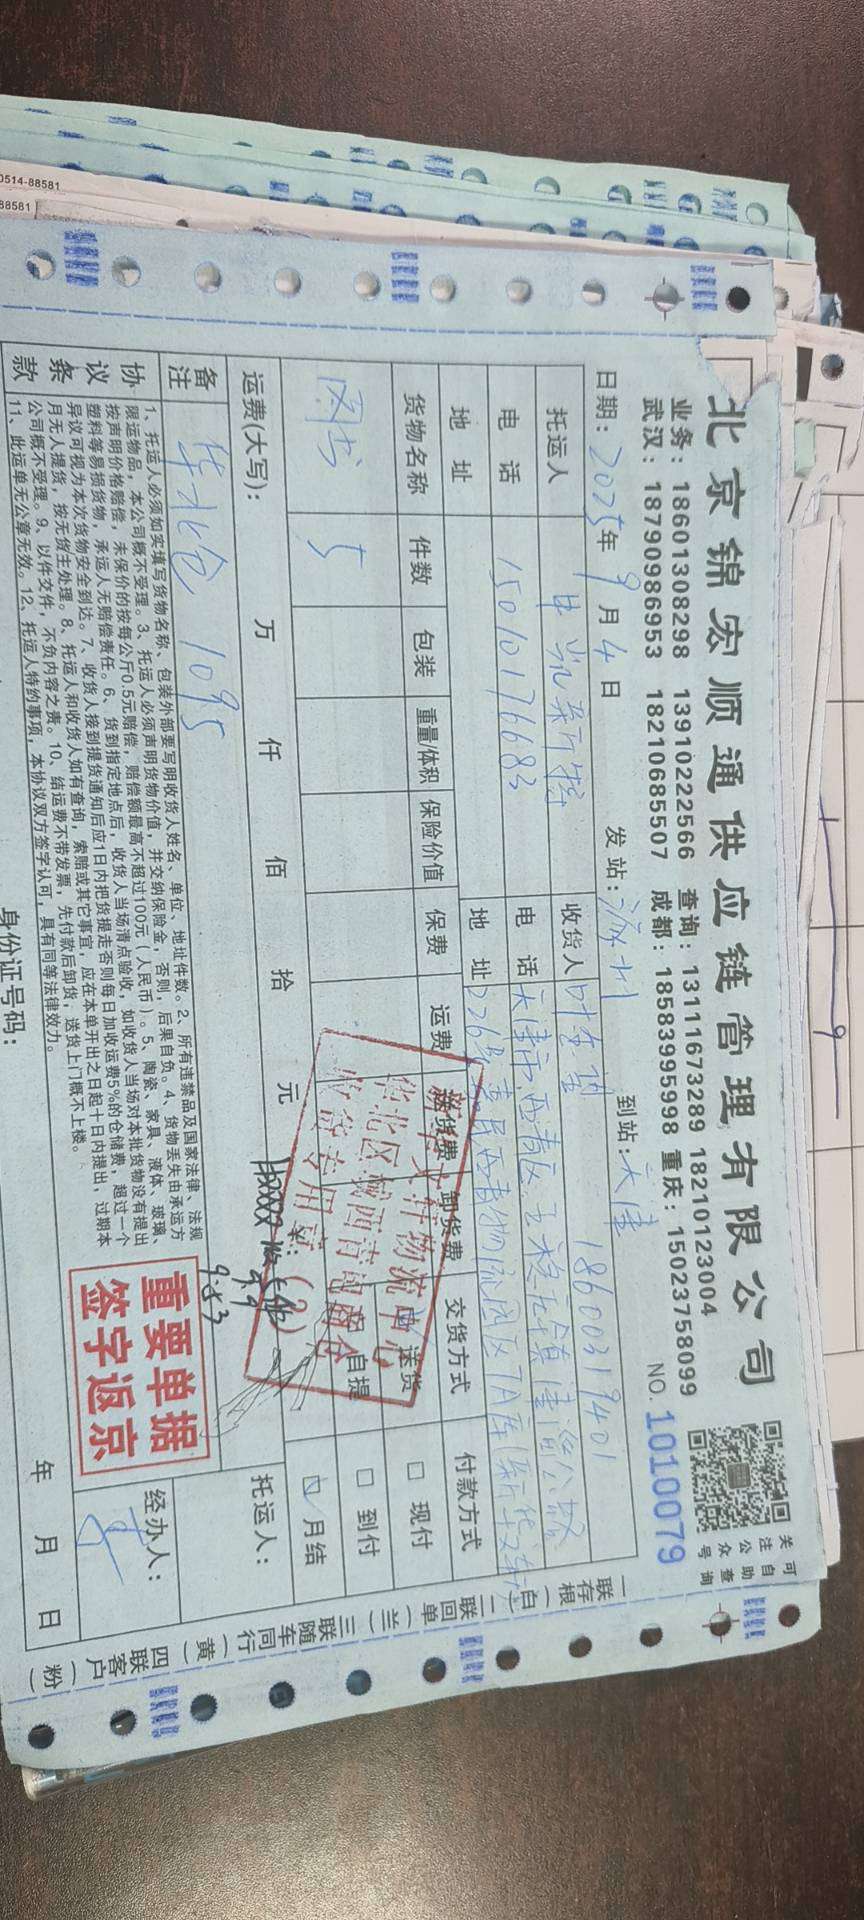 北京锦宏顺通供应链管理有限公司
可自助查询
关注公众号
业务：18601308298 13910222566 查询：13111673289 18210123004
武汉：18790986953 18210685507 成都：18583995998 重庆：15023758099
NO. 1010079
日期：2025年9月4日 发站：涿州 到站：天津
托运人 收货人 18600319401
电话 15010176683 电话
地址 地址
货物名称 件数 包装 重量/体积 保险价值 保费 运费 送货费 卸货费 交货方式 付款方式
图书 5
送货 自提
□ 现付
□ 到付
☑ 月结
运费(大写)： 万 仟 佰 拾 元
备注 华北仓 1095
9.9
9.53
托运人：
经办人：
协议条款
1、托运人必须如实填写货物名称、包装外部要写明收货人姓名、单位、地址件数。2、所有违禁品及国家法律、法规
限运物品，本公司概不受理。3、托运人必须声明货物价值，并交纳保险金，否则，后果自负。4、货物丢失由承运方
按声明价格赔偿，未保价的按每公斤0.5元赔偿，赔偿额最高不超过100元（人民币）。5、陶瓷、家具、液体、玻璃、
塑料等易损货物，承运人无赔偿责任。6、货到指定地点后，收货人当场清点验收，如收货人当场对本批货物没有提出
异议可视为本次货物安全到达。7、收货人接到提货通知后应1日内把货提走否则每日加收运费5%的仓储费，超过一个
月无人提货，按无货主处理。8、托运人和收货人如有查询，索赔或其它事宜，应在本单开出之日起十日内提出，过期本
公司概不受理。9、以件交件，不负内容之责。10、结运费不带发票，先付款后卸货，送货上门概不上楼。
11、此运单无公章无效。12、托运人特约事项，本协议双方签字认可，具有同等法律效力。
身份证号码：
年 月 日
重要单据
签字返京
新华文轩物流中心
收货专用章（2）
一联存根（白） 二联回单（兰） 三联随车同行（黄） 四联客户（粉）
0514-88581
88581